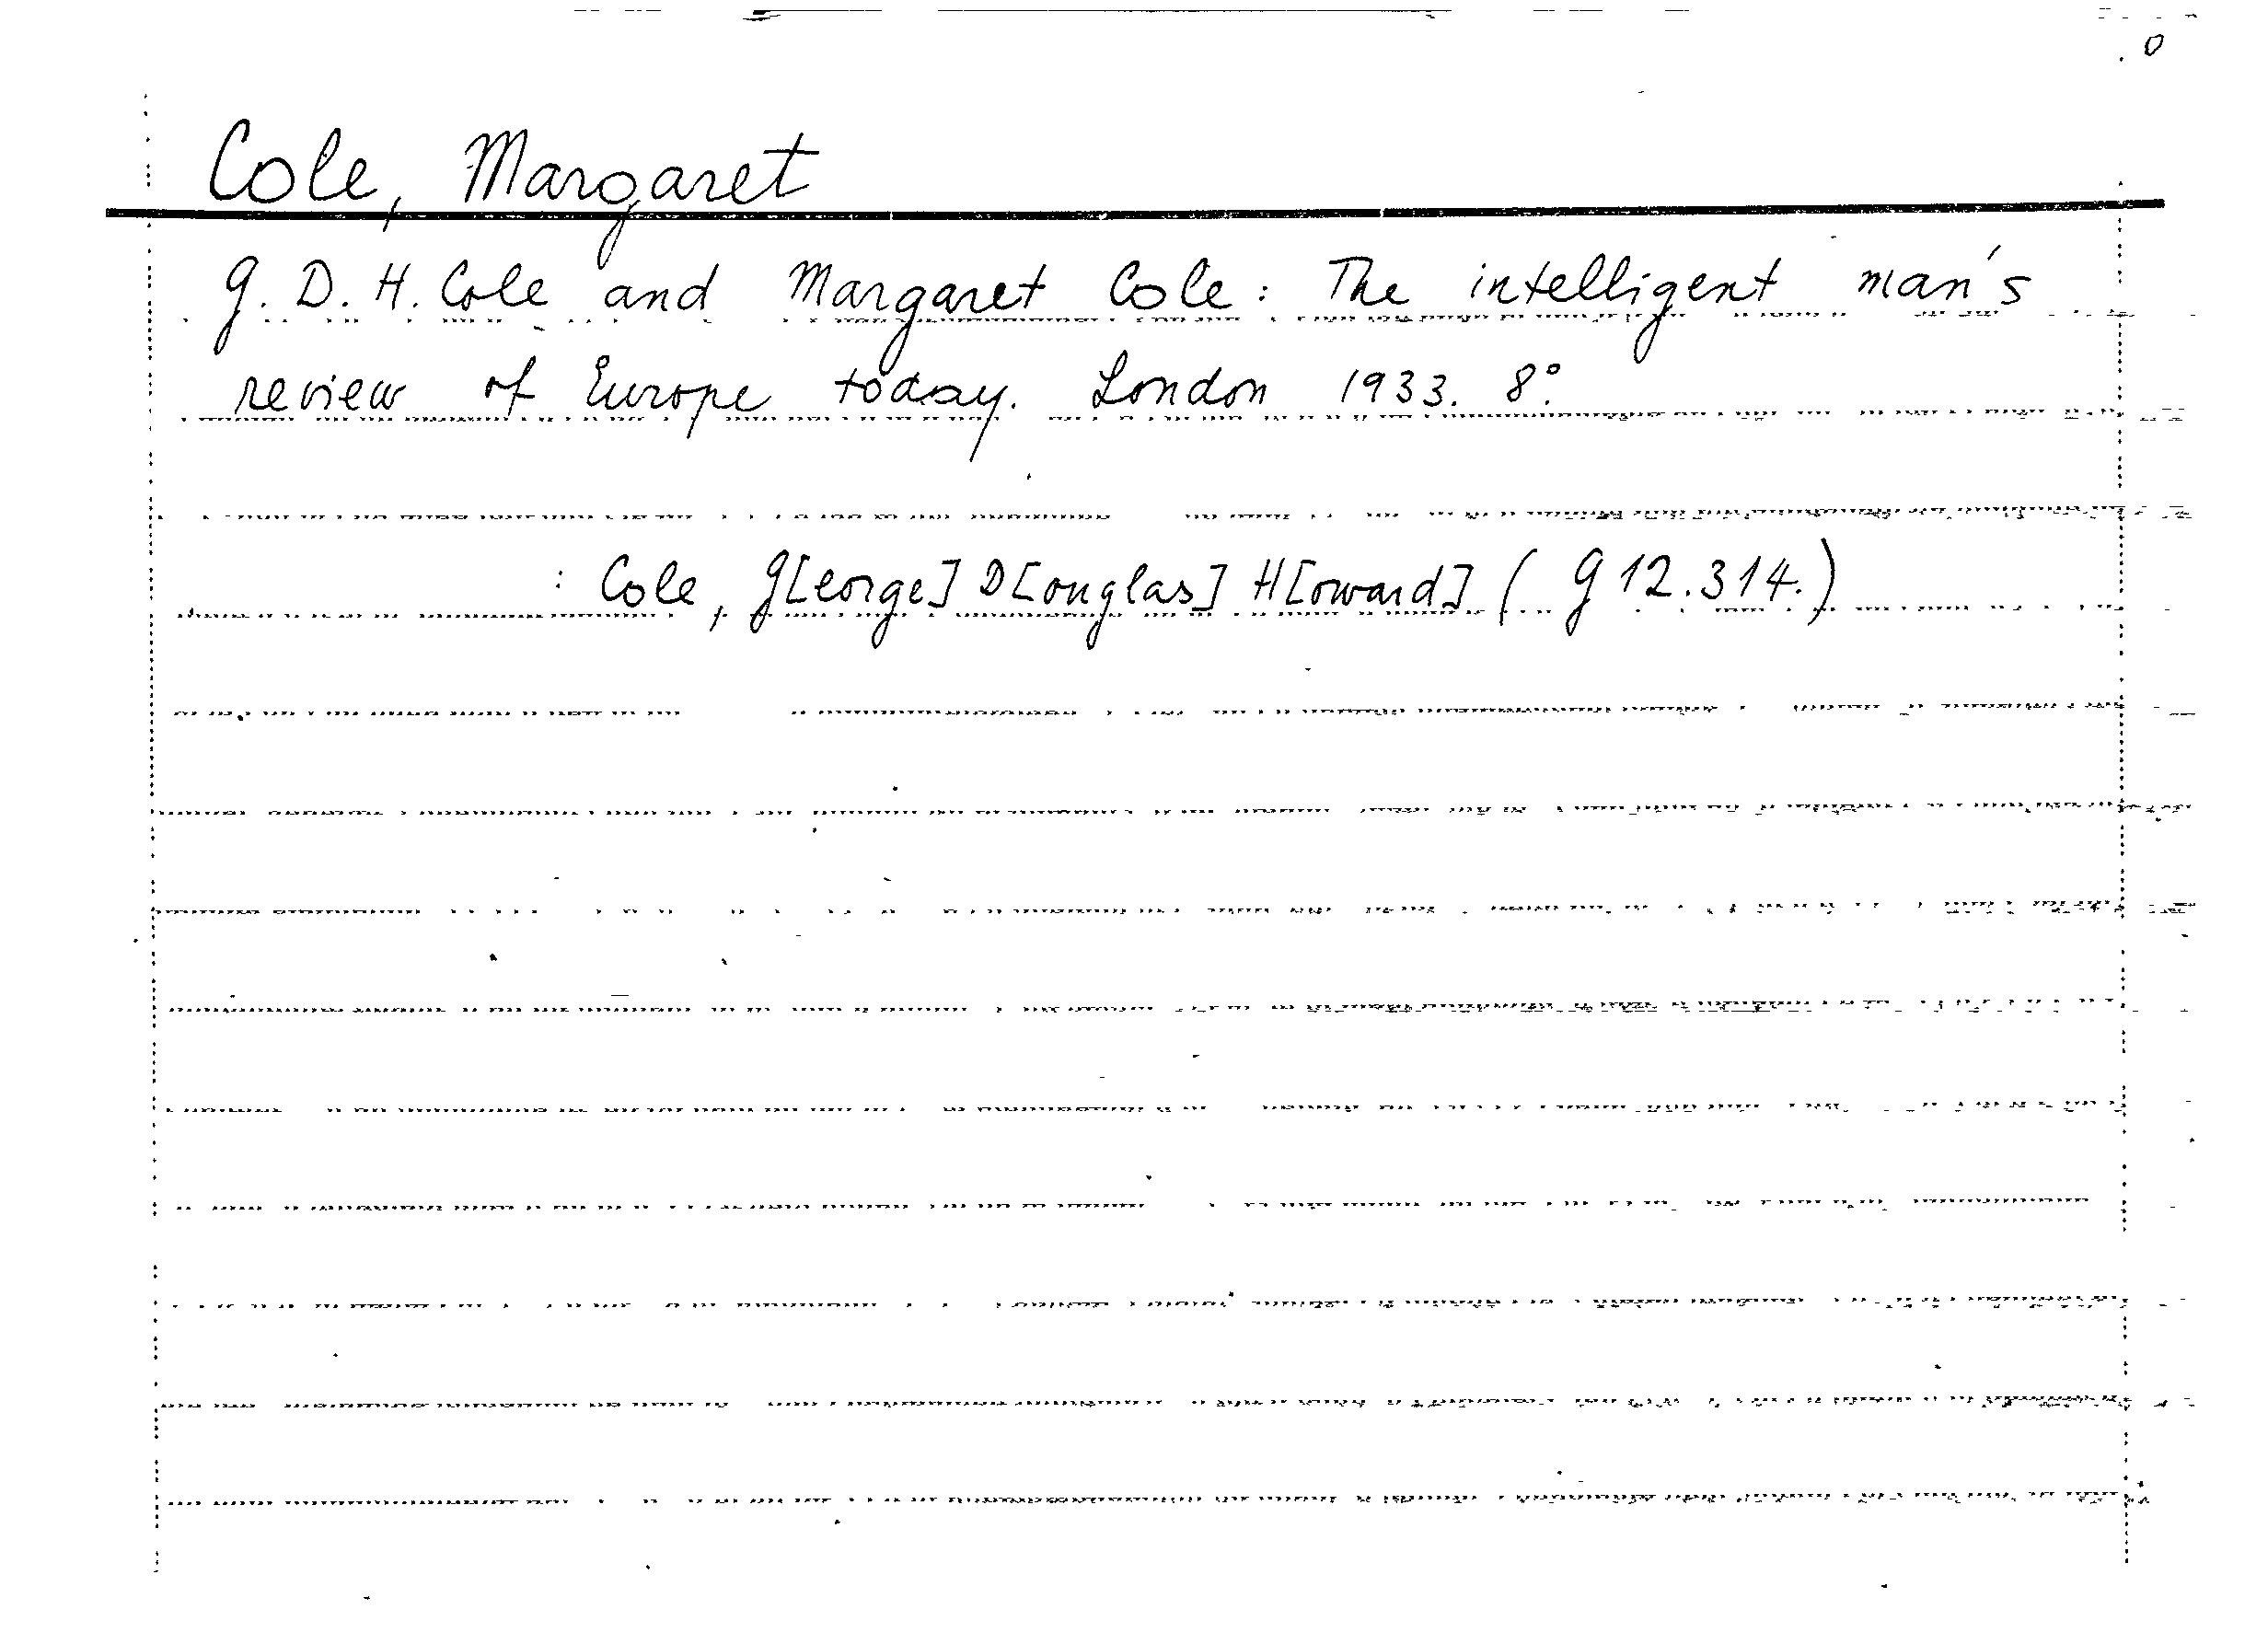 Cole, Margaret
G. D. H. Cole and Margaret Cole: The intelligent man's
review of Europe today. London 1933. 8°.
: Cole, G[eorge] D[ouglas] H[oward] ( G 12.314.)